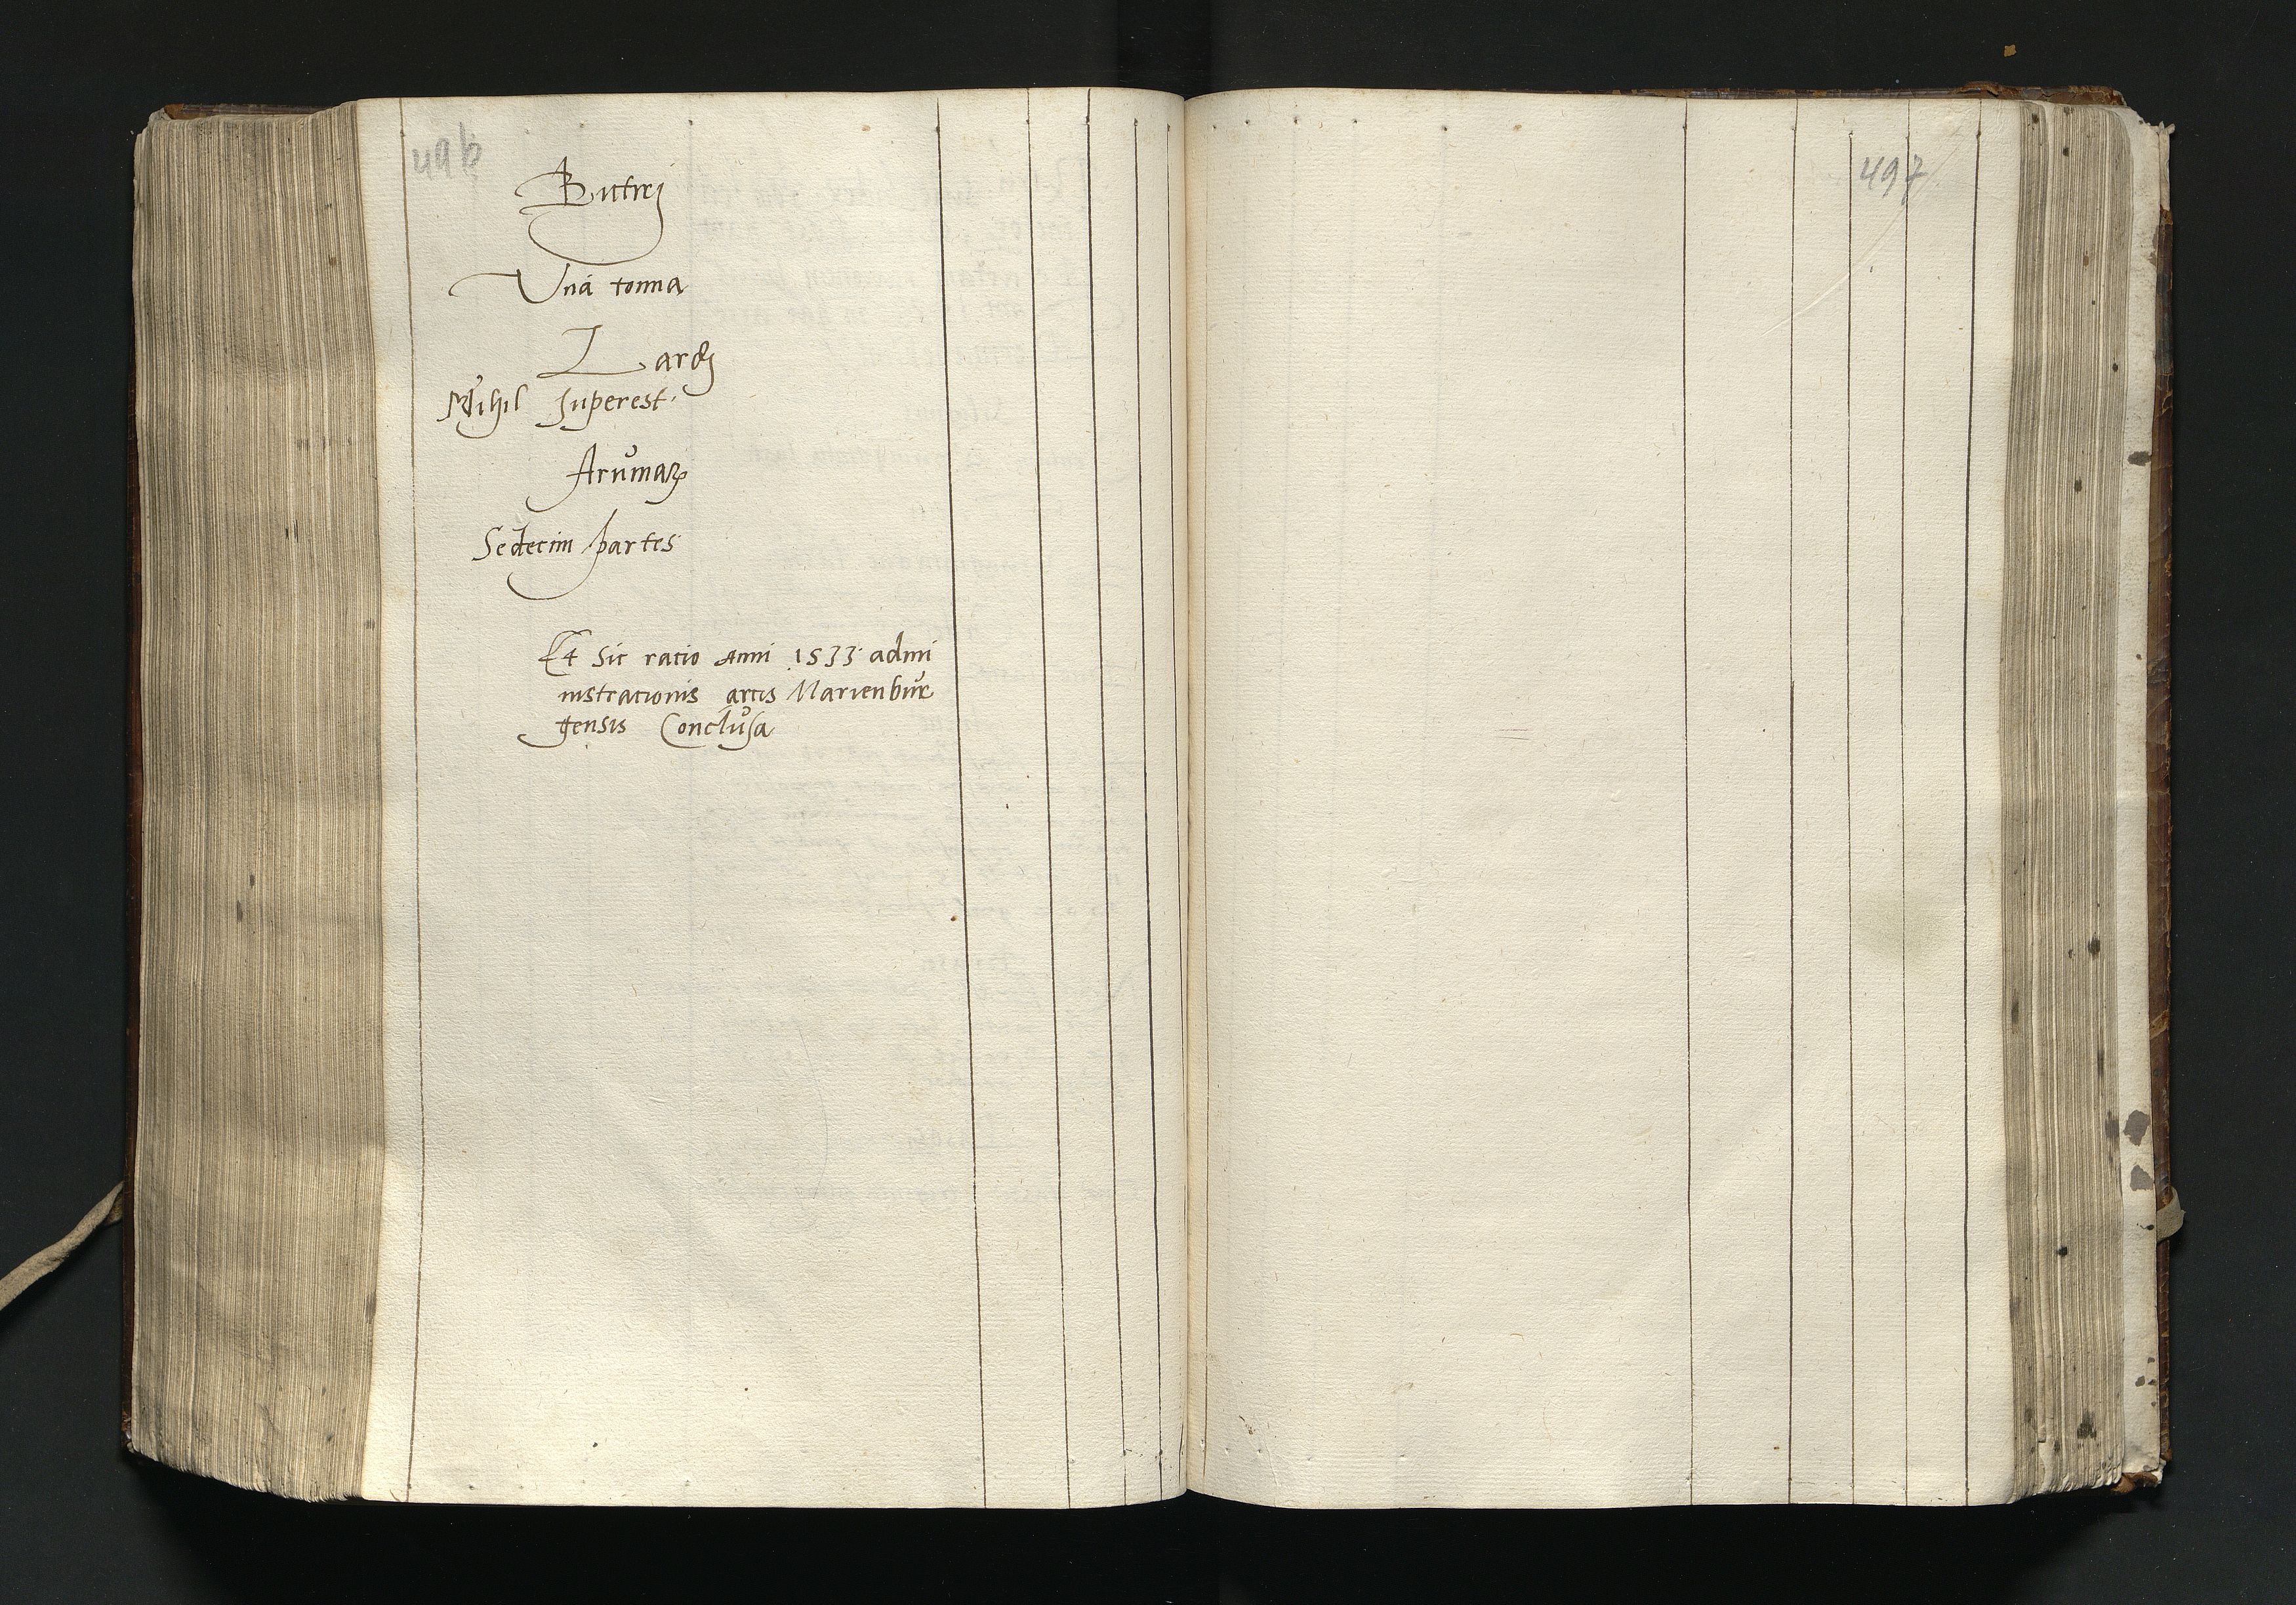 496
Butirj
Vna tonna
Lardj
Nihil superest
Arumaꝝ
Sedecim partes
Et sic ratio anni 1533 admi
nistrationis arcis Marienbur
gensis Conclusa
497